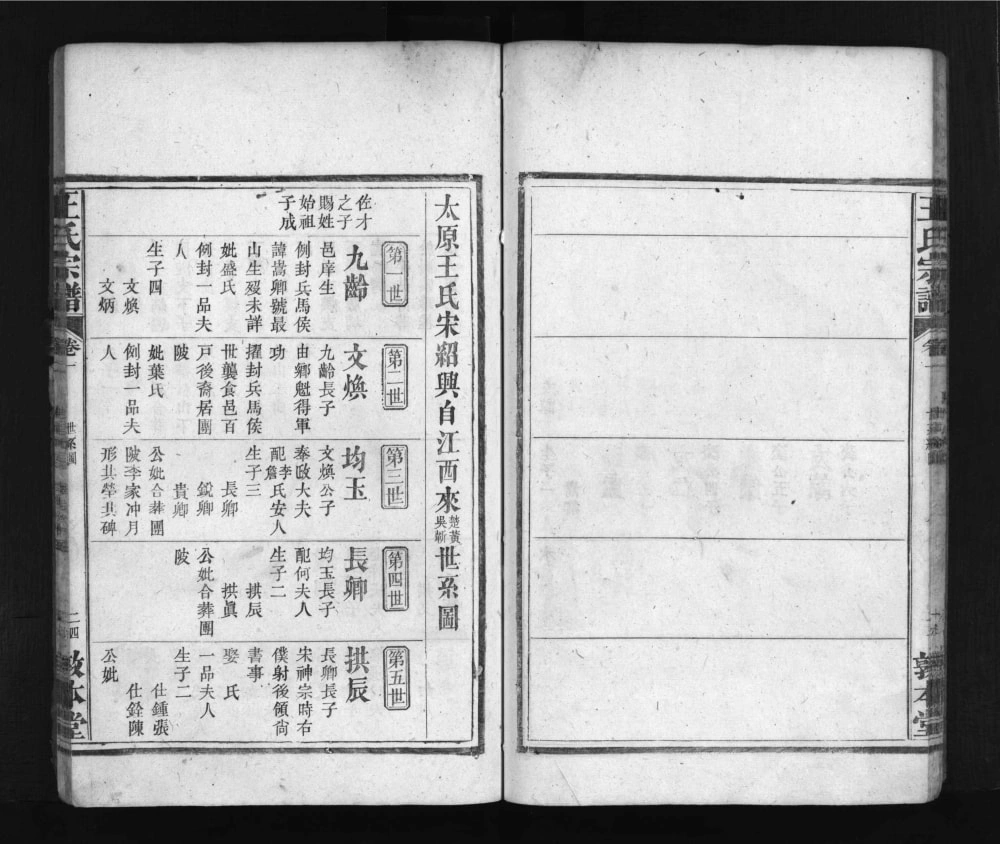 王氏宗譜
卷一
敦本堂
太原王氏宋紹興自江西來楚黃吳蘄世系圖
第一世
佐才
之子
賜姓
始祖
子成
九齡
邑庠生
例封兵馬侯
諱嵩卿號最
山生歿未詳
妣盛氏
例封一品夫
人
生子四
文煥
文炳
第二世
文煥
九齡長子
由鄉魁得軍
功
擢封兵馬侯
世襲食邑百
戸後裔居團
陂
妣葉氏
例封一品夫
人
第三世
均玉
文煥公子
奉政大夫
配李詹氏安人
生子三
長卿
銳卿
貴卿
公妣合葬團
陂李家冲月
形其塋其碑
第四世
長卿
均玉長子
配何夫人
生子二
拱辰
拱眞
公妣合葬團
陂
第五世
拱辰
長卿長子
宋神宗時右
僕射後領尙
書事
娶 氏
一品夫人
生子二
仕鍾張
仕銓陳
公妣
王氏宗譜
卷一
世系圖
二四
敦本堂